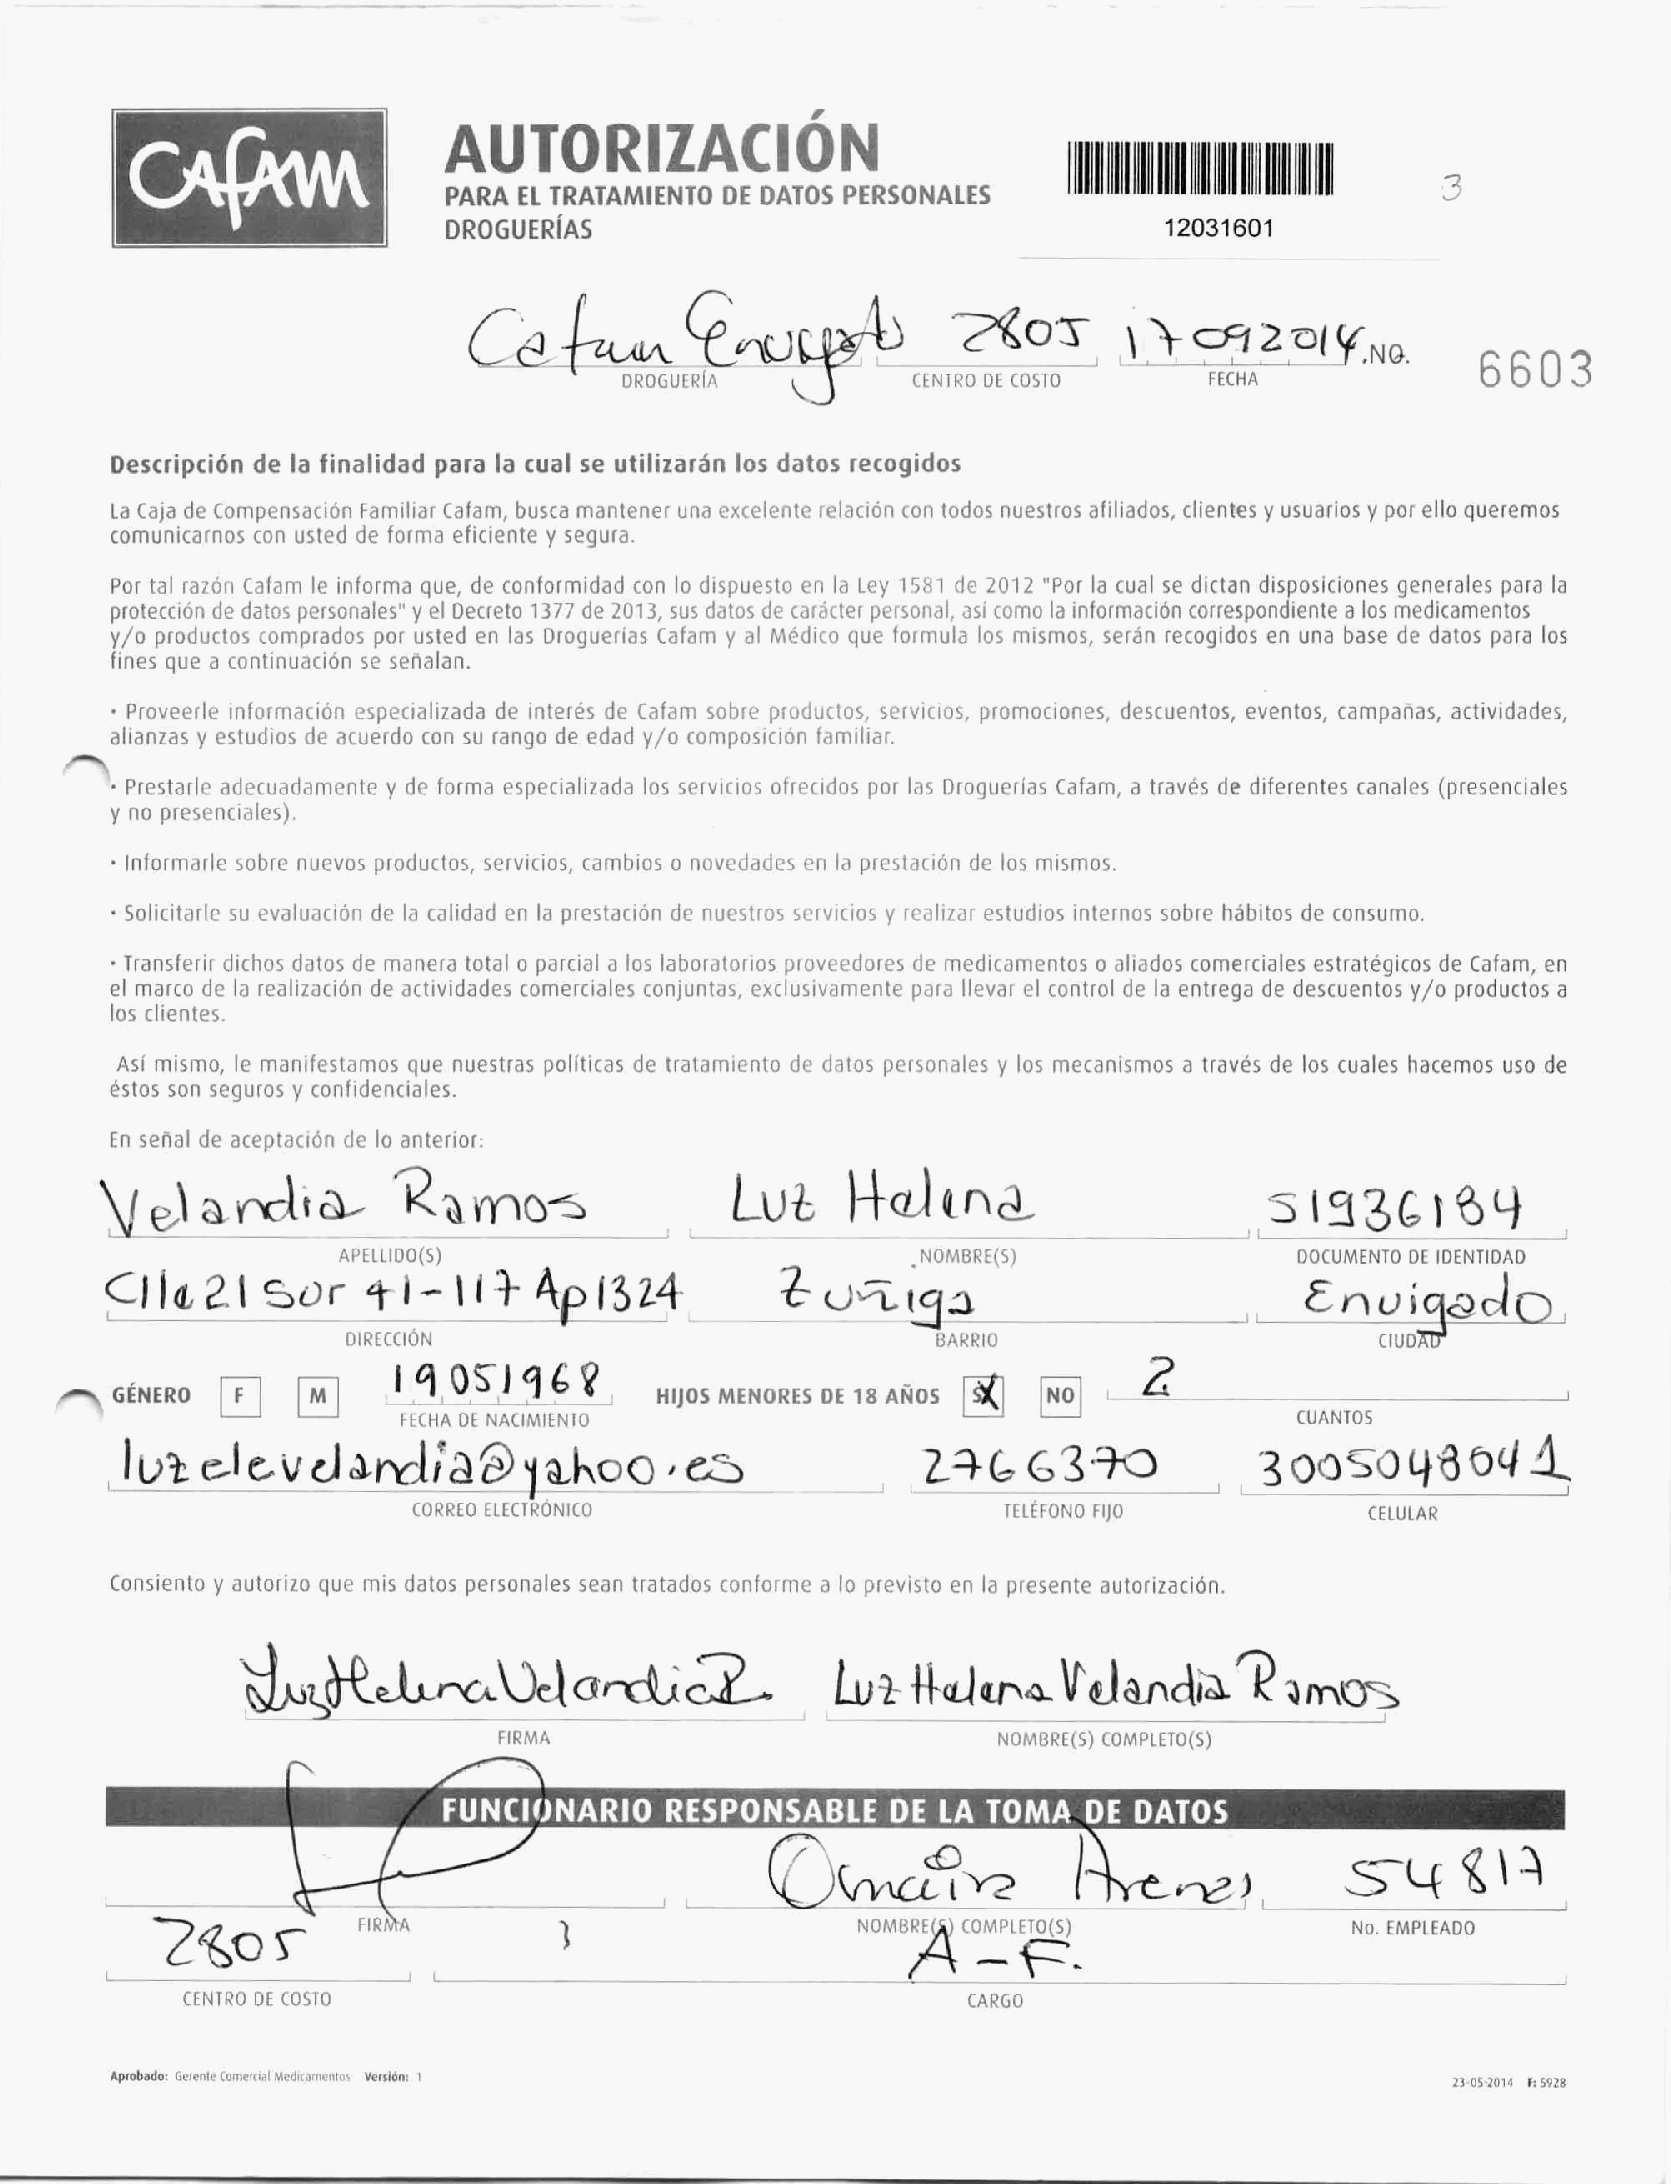 CAFAM
AUTORIZACIÓN
PARA EL TRATAMIENTO DE DATOS PERSONALES
DROGUERÍAS
12031601
3
Cafam Envigado 2805 17092014 .NO. 6603
DROGUERÍA CENTRO DE COSTO FECHA
Descripción de la finalidad para la cual se utilizarán los datos recogidos
La Caja de Compensación Familiar Cafam, busca mantener una excelente relación con todos nuestros afiliados, clientes y usuarios y por ello queremos
comunicarnos con usted de forma eficiente y segura.
Por tal razón Cafam le informa que, de conformidad con lo dispuesto en la Ley 1581 de 2012 "Por la cual se dictan disposiciones generales para la
protección de datos personales" y el Decreto 1377 de 2013, sus datos de carácter personal, así como la información correspondiente a los medicamentos
y/o productos comprados por usted en las Droguerías Cafam y al Médico que formula los mismos, serán recogidos en una base de datos para los
fines que a continuación se señalan.
· Proveerle información especializada de interés de Cafam sobre productos, servicios, promociones, descuentos, eventos, campañas, actividades,
alianzas y estudios de acuerdo con su rango de edad y/o composición familiar.
· Prestarle adecuadamente y de forma especializada los servicios ofrecidos por las Droguerías Cafam, a través de diferentes canales (presenciales
y no presenciales).
· Informarle sobre nuevos productos, servicios, cambios o novedades en la prestación de los mismos.
· Solicitarle su evaluación de la calidad en la prestación de nuestros servicios y realizar estudios internos sobre hábitos de consumo.
· Transferir dichos datos de manera total o parcial a los laboratorios proveedores de medicamentos o aliados comerciales estratégicos de Cafam, en
el marco de la realización de actividades comerciales conjuntas, exclusivamente para llevar el control de la entrega de descuentos y/o productos a
los clientes.
Así mismo, le manifestamos que nuestras políticas de tratamiento de datos personales y los mecanismos a través de los cuales hacemos uso de
éstos son seguros y confidenciales.
En señal de aceptación de lo anterior:
Velandia Ramos Luz Helena 51936184
APELLIDO(S) NOMBRE(S) DOCUMENTO DE IDENTIDAD
Clle 21 Sur 41-117 Ap 1324 Zuñiga Envigado
DIRECCIÓN BARRIO CIUDAD
GÉNERO F M 19051968 HIJOS MENORES DE 18 AÑOS SI NO 2
FECHA DE NACIMIENTO CUANTOS
luzelevelandia@yahoo.es 2766370 3005048041
CORREO ELECTRÓNICO TELÉFONO FIJO CELULAR
Consiento y autorizo que mis datos personales sean tratados conforme a lo previsto en la presente autorización.
Luz Helena Velandia R. Luz Helena Velandia Ramos
FIRMA NOMBRE(S) COMPLETO(S)
FUNCIONARIO RESPONSABLE DE LA TOMA DE DATOS
Omaira Arenas 54817
FIRMA NOMBRE(S) COMPLETO(S) No. EMPLEADO
2805 A-F.
CENTRO DE COSTO CARGO
Aprobado: Gerente Comercial Medicamentos Versión: 1
23-05-2014 F: 5928